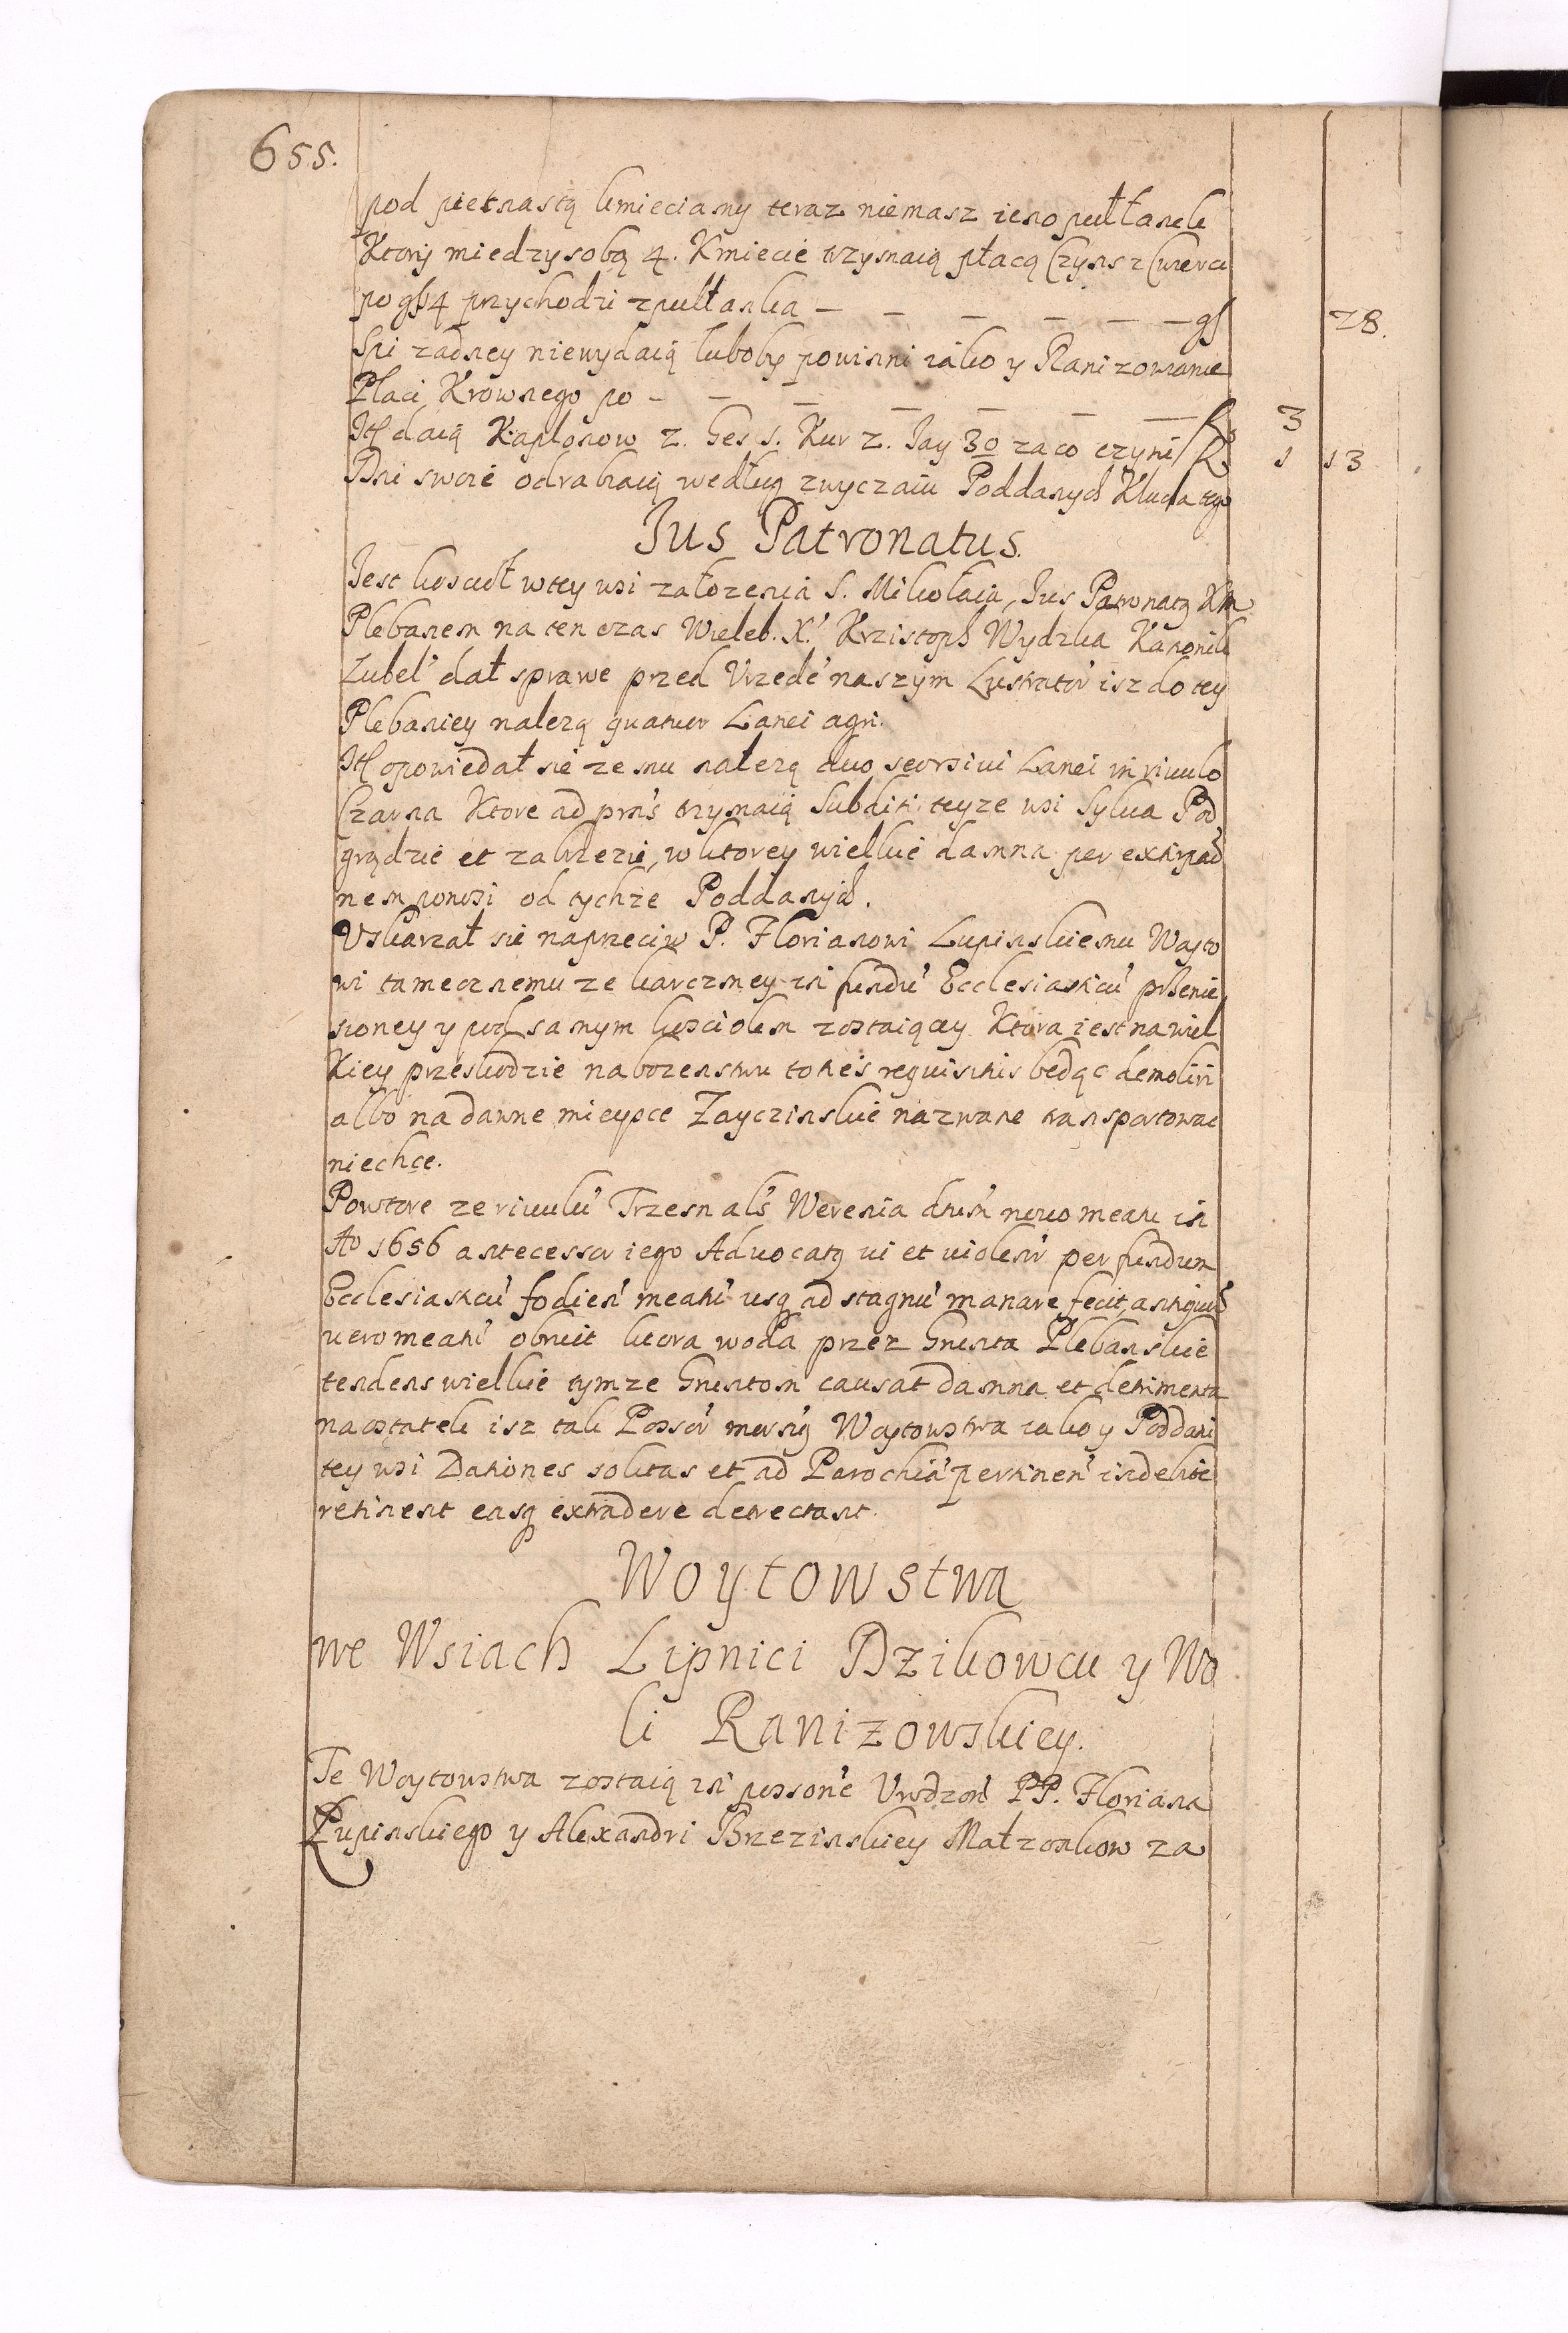 655.
pod pietnastą kmieciamy teraz niemasz ieno pułłanek
Ktory miedzy sobą 4. Kmiecie trzymaią płacą Czynsz z Cwierci
po gß 4 przychodzi z pułłanka — — — — — — gß 28.
Spi zadney niewydaią luboby powinni iako y Ranizowianie
Płaci Krownego po — — — — — — — fl 3
Itl daią Kapłonow 2. Ges 1. Kur 2. Jay 30 za co czyni fl 1 13
Dni swoie odrabiaią według zwyczaiu Poddanych Klucza tego
Jus Patronatus.
Jest koscioł w tey wsi załozenia S. Mikołaia, Jus Patronatg KM
Plebanem na ten czas Wieleb. X. Krzistoph Wydzka Kanonik
Lubel dał sprawe przed Vrzedē naszym Lustrator isz do tey
Plebaniey nalezą quatuor Lanei agri.
Itl opowiedał sie ze mu nalezą duo seorsivi Lanei in rivulo
Czarna Ktore ad prns trzymaią subditi teyze wsi Sylva Pod
grądzie et zabrzezie, w ktorey wielkie damna per extirpao
nem ponosi od tychze Poddanych.
Vskarzał sie naprzeciw P. Florianowi Lupinskiemu Woyto
wi tamecznemu ze karczmey in fundu Ecclesiasticu przenie
sioney y pod samym kosciołem zostaiącey Ktora iest na wiel
kiey przeskodzie nabozenstwu toties requisitis będąc demoliri
albo na dawne mieysce Zayczinskie nazwane transportowac
niechce.
Powtore ze rivulu Trzesn als Werenia dictu novo meatu in
Ao 1656 antecessor iego Advocatg vi et violenr per fundum
Ecclesiasticu fodien meatu usq ad stagnu manare fecit, antiquu
vero meatu obruit ktora woda przez Grunta Plebanskie
tendens wielkie tymze Gruntom causat damna et detrimenta
naostatek isz tak Possor mersig Woytowstwa iako y Poddani
tey wsi Dationes solitas et ad Parochia pertinen indebite
retinent easq extradere detrectant.
Woytowstwa
we Wsiach Lipnici Dzikowcu y Wo
li Ranizowskiey.
Te Woytowstwa zostaią in possone Vrodzon PP. Floriana
Łupinskiego y Alexandri Brzezinskiey Małzonkow za